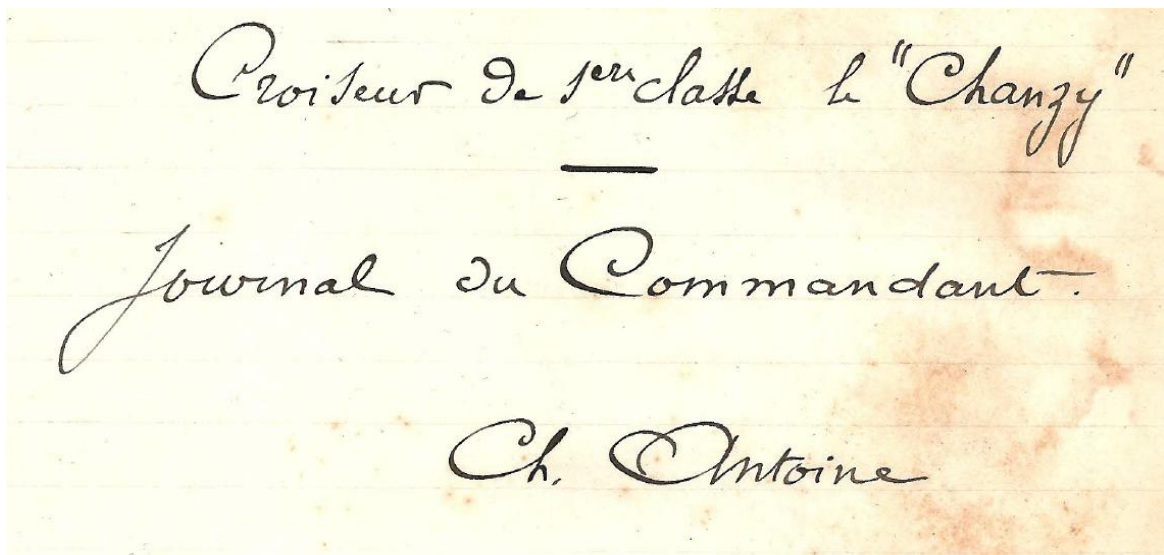 Croiseur de 1ere classe le "Chanzy"
Journal du Commandant.
Ch. Antoine